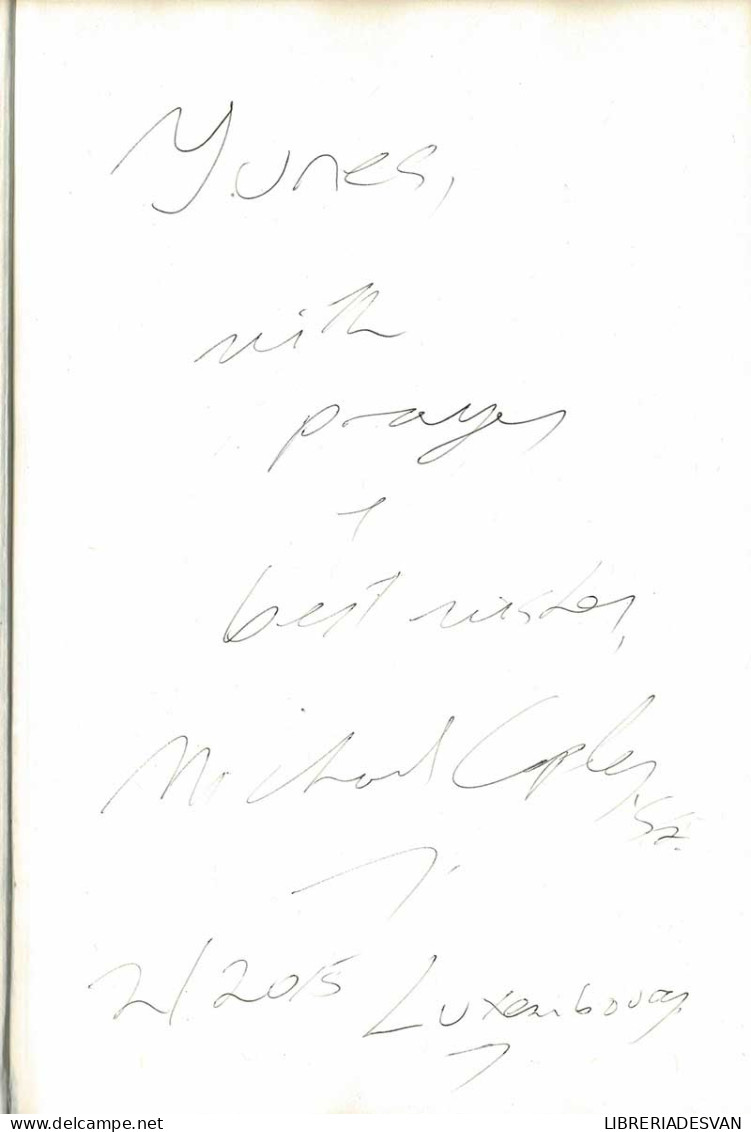 Yunes,
with
prayer
+
best wishes,
Michael Copley, SJ.
2/2015 Luxembourg
LIBRERIADESVAN